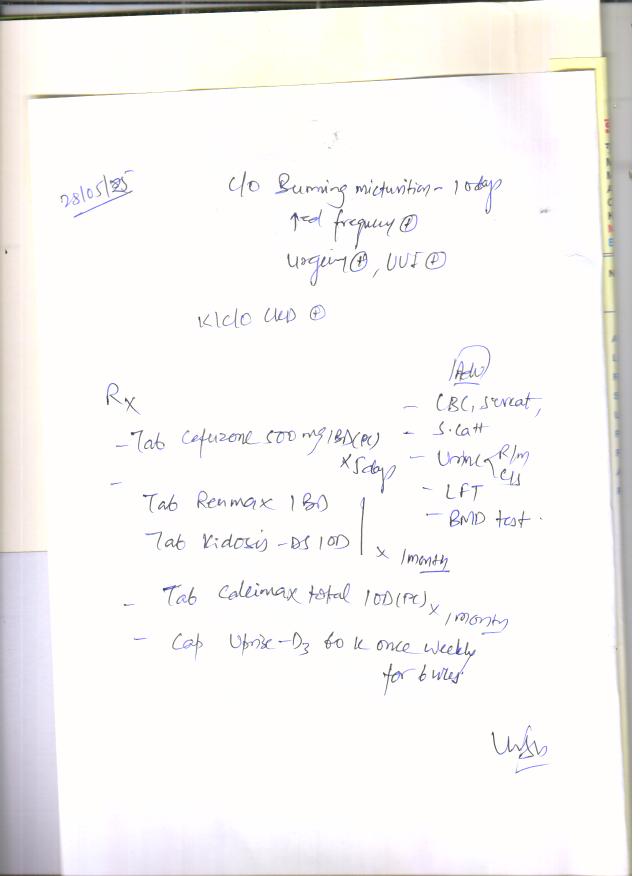 28/05/25
C/o Burning micturition - 10 days
↑ed frequency ⊕
urgency ⊕, UUI ⊕
K/C/O CKD ⊕
Rx
Adv
- CBC, S.creat,
- S.Ca++
- Urine < R/m
C/s
- LFT
- BMD test.
- Tab Cefuzone 500 mg 1BD(PC)
x 5 days
- Tab Renmax 1 BD
Tab Kidosis-DS 1OD
x 1 month
- Tab Calcimax total 1OD(PC) x 1 month
- Cap Uprise-D3 60 K once weekly
for 6 wks.